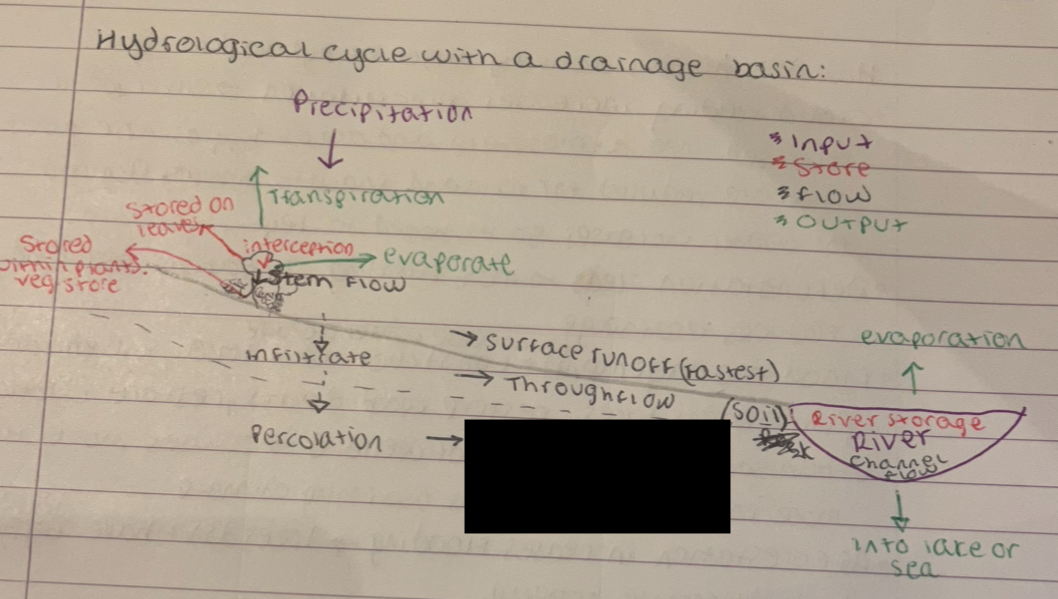 Hydrological cycle with a drainage basin:
Precipitation
* Input
* Store
* flow
* Output
Transpiration
stored on
leaves
interception
Stored
plants.
veg store
evaporate
Stem flow
infiltrate
→ surface runoff (fastest)
→ Throughflow
evaporation
(soil)
River storage
River
channel
flow
Percolation →
into lake or
sea